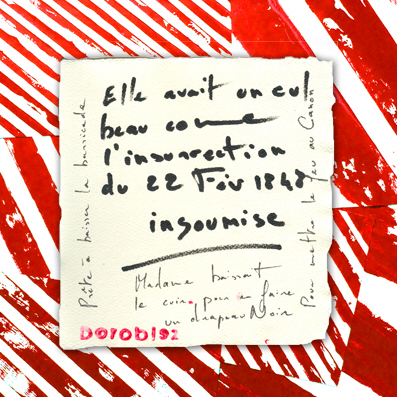 Elle avait un cul
beau comme
l'insurrection
du 22 Fév 1848
insoumise
Madame baissait
le cuir, pour en faire
un drapeau Noir
Prête à baisser la barricade
Pour mettre le feu au Canon
DOROBI92